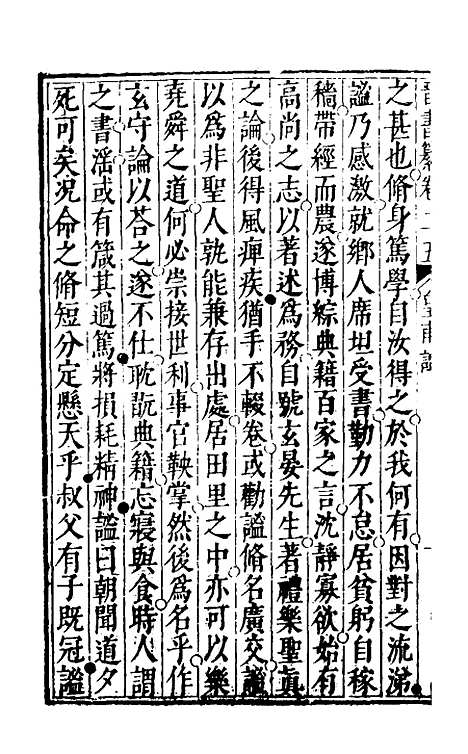 晉書纂卷二十五 皇甫謐
之甚也脩身篤學自汝得之於我何有因對之流涕
謐乃感激就鄉人席坦受書勤力不怠居貧躬自稼
穡帶經而農遂博綜典籍百家之言沈靜寡欲始有
高尚之志以著述爲務自號玄晏先生著禮樂聖眞
之論後得風痺疾猶手不輟卷或勸謐脩名廣交謐
以爲非聖人孰能兼存出處居田里之中亦可以樂
堯舜之道何必崇接世利事官鞅掌然後爲名乎作
玄守論以荅之遂不仕耽翫典籍忘寢與食時人謂
之書淫或有箴其過篤將損耗精神謐曰朝聞道夕
死可矣況命之脩短分定懸天乎叔父有子旣冠謐